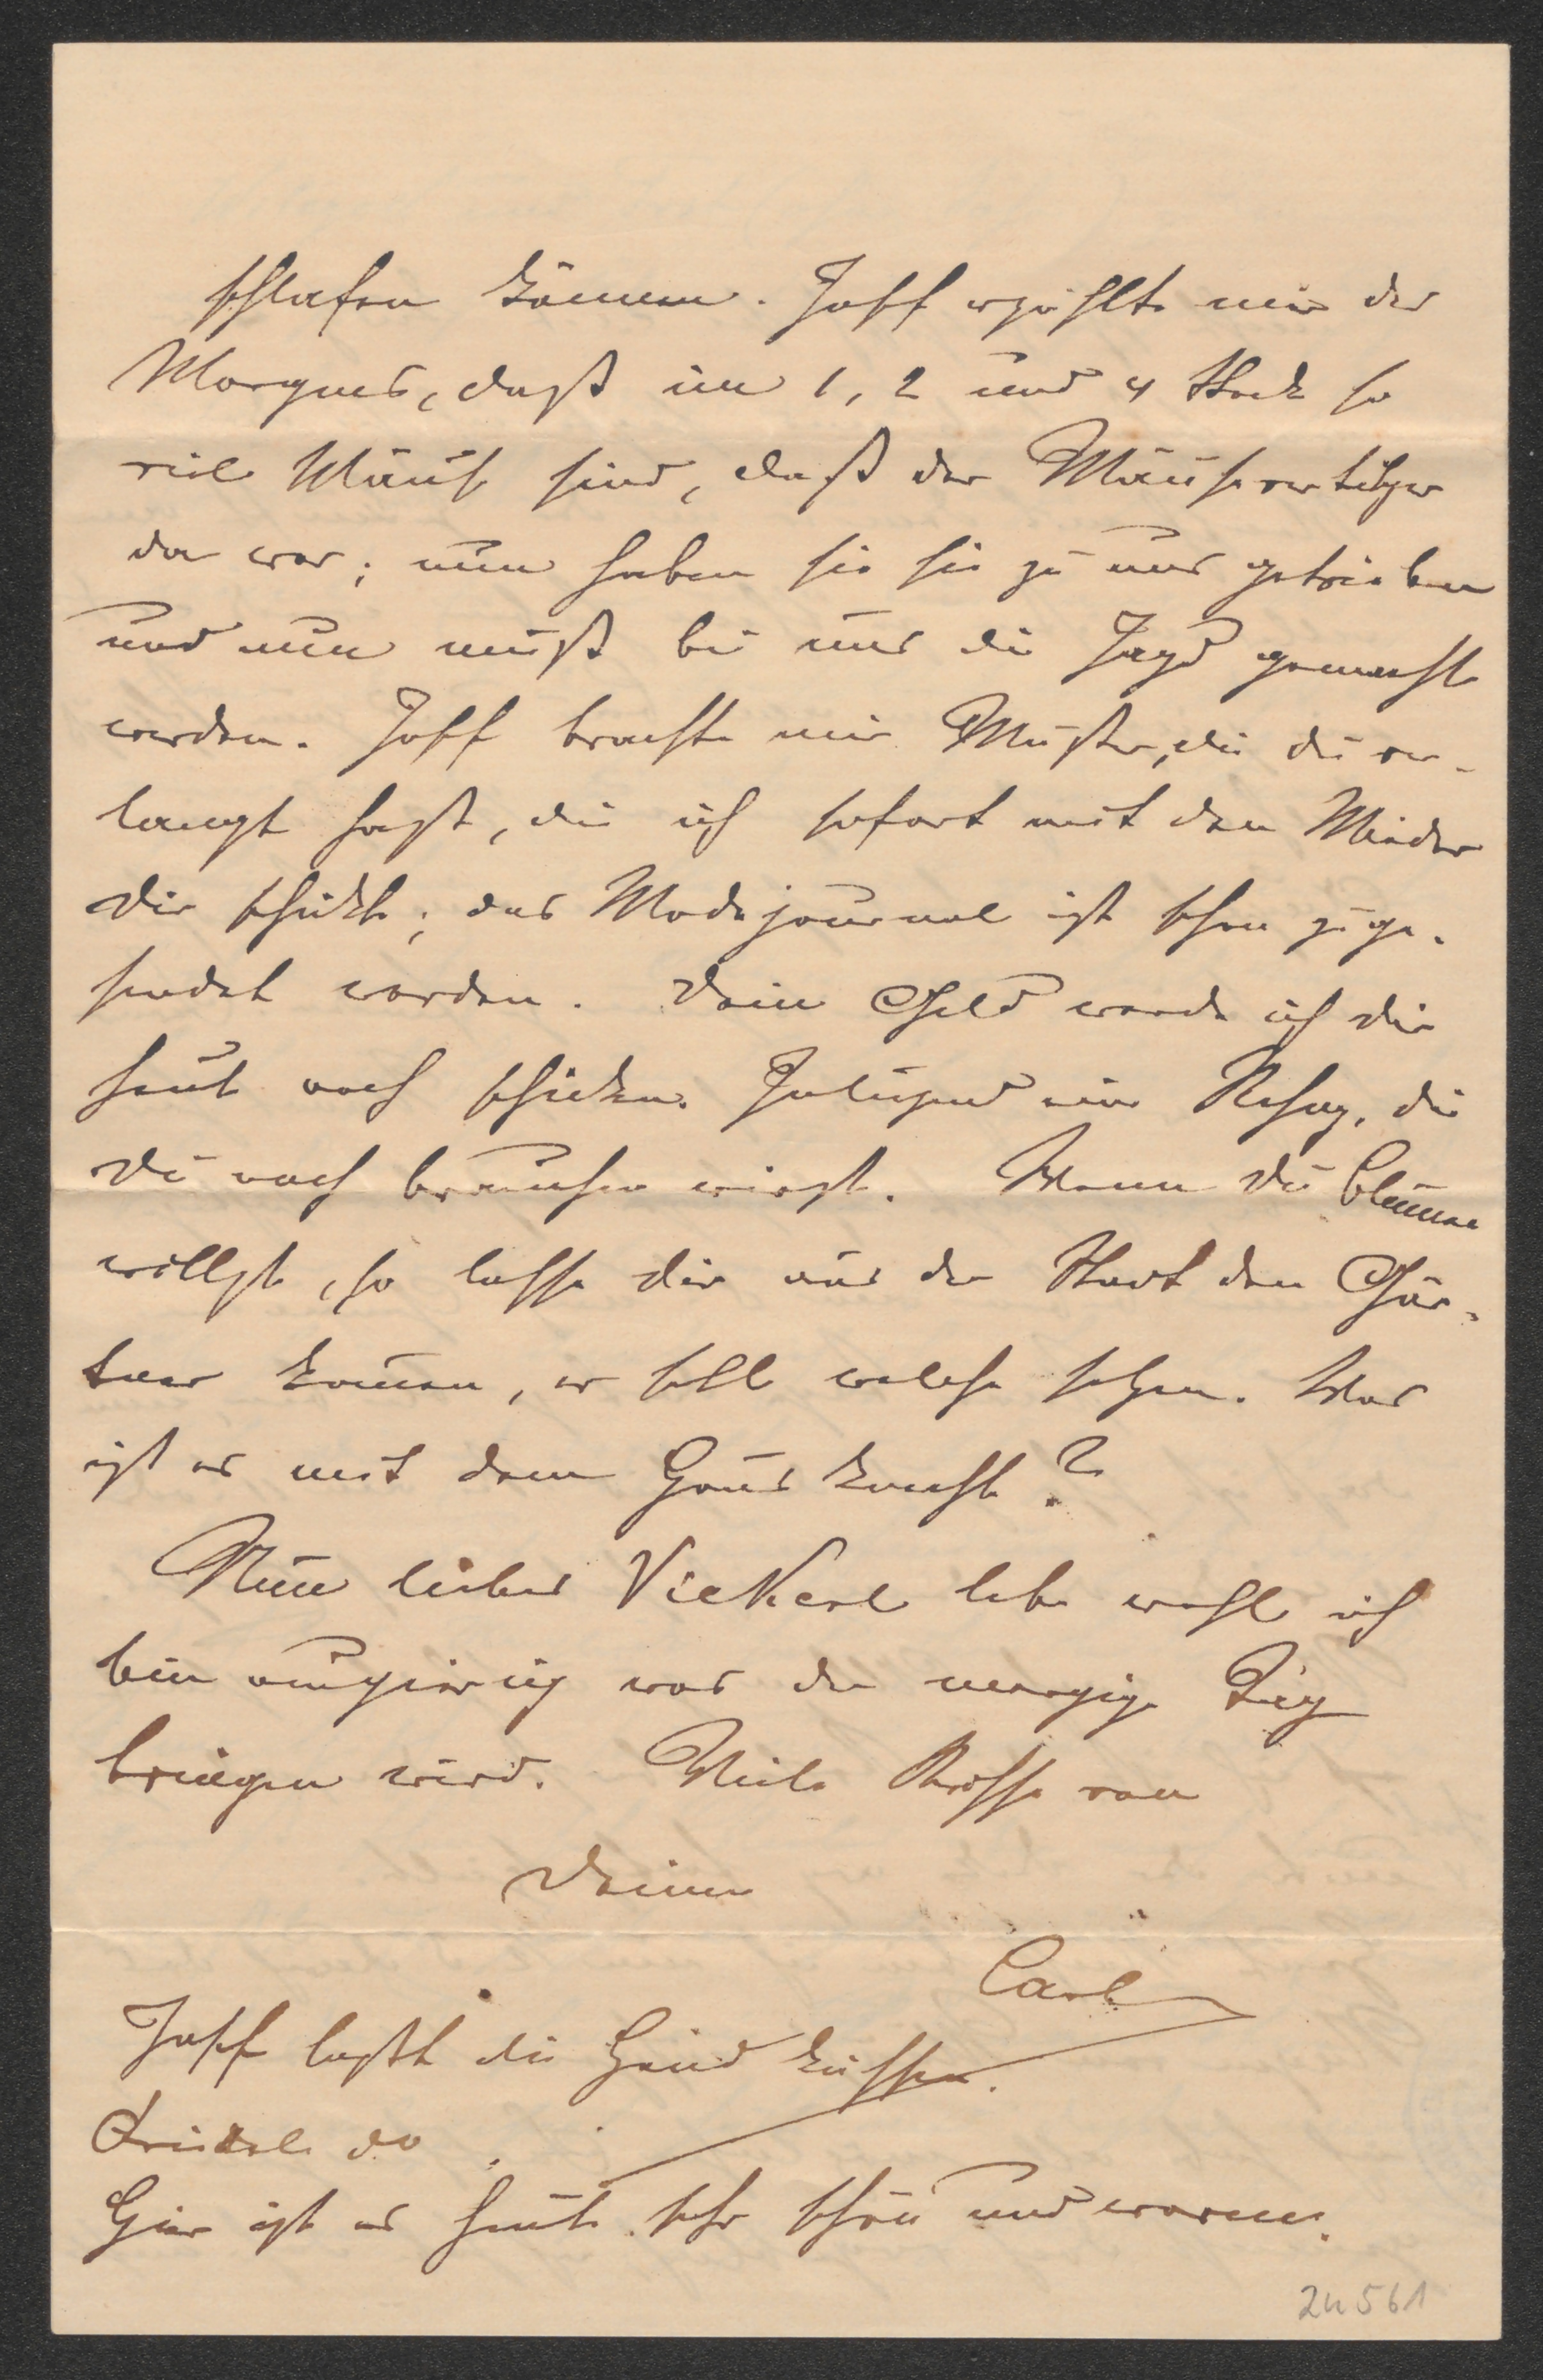 schlafen können. Josef erzählte mir des
Morgens, daß im 1, 2 und 4 Stock so
viel Mäuse sind, daß der Mäusevertilger
da war; nun haben sie sie zu uns getrieben
und nun muß bei uns die Jagd gemacht
werden. Josef brachte mir Muster, die du ver-
langt hast, die ich sofort mit dem Mieder
Dir schickte; das Modejournal ist schon zuge-
sendet worden. Dein Geld werde ich dir
heute noch schicken. Inliegend eine Rechng, die
Du noch brauchen wirst. Wenn Du Blumen
willst, so lasse dir aus der Stadt den Gär-
tner kommen, er soll welche setzen. Was
ist es mit dem Hausknecht?
Nun liebes Vickerl lebe wohl ich
bin neugierig was der morgige Tag
bringen wird. Viele Küsse von
Deinem
Carl
Josef laßt die Händ küssen.
do
Hier ist es heute sehr schön und warm.
24561